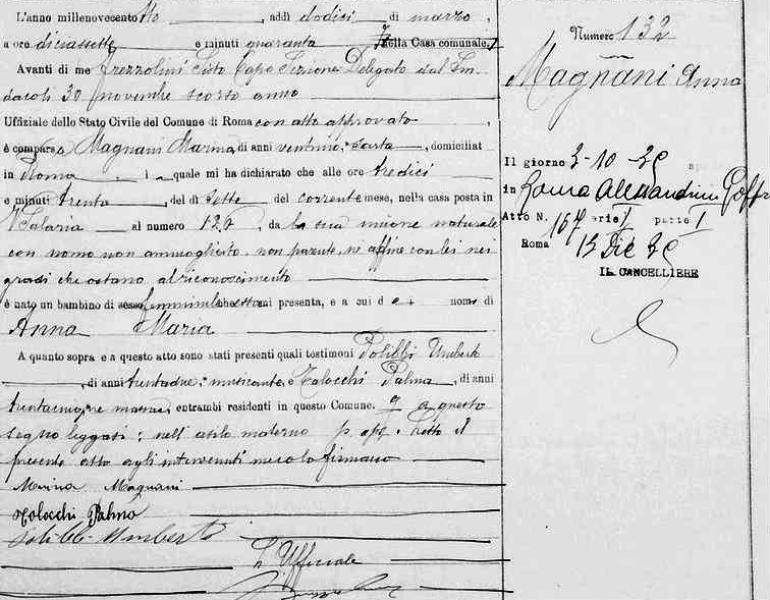 L'anno millenovecento otto, addì dodici di marzo,
a ore diciassette e minuti quaranta nella Casa comunale.
Avanti di me Frezzolini Sisto Capo Sezione Delegato dal Sin
daco li 30 novembre scorso anno
Uffiziale dello Stato Civile del Comune di Roma con atto approvato
è compars a Magnani Marina di anni ventun, sarta, domiciliat
in Roma, l a quale mi ha dichiarato che alle ore tredici
e minuti trenta, del dì sette del corrente mese, nella casa posta in
V Salaria al numero 126, da la sua unione naturale
con uomo non ammogliato, non parente, ne affine con lei nei
gradi che ostano al riconoscimento
è nato un bambino di sesso femminile che essa mi presenta, e a cui dà i nomi di
Anna Maria
A quanto sopra e a questo atto sono stati presenti quali testimoni Umberto
, di anni trentadue, e Tolocchi Palma, di anni
entrambi residenti in questo Comune. a questo
segno leggasi: nell'asilo materno Letto il
presente atto agli intervenuti meco lo firmano
Marina Magnani
Tolocchi Palma
Umberto
L'Ufficiale
Numero 132
Magnani Anna
Il giorno 3-10-35
in Roma Alessandrini Goffr
Atto N. 167 serie I parte I
Roma 13 Dic 35
IL CANCELLIERE